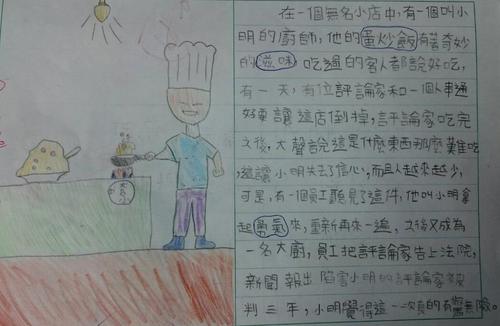 在一個無名小店中,有一個叫小
明的廚師,他的蛋炒飯有著奇妙
的滋味,吃過的客人都說好吃,
有一天,有位評論家和一個人串通
好要讓這店倒掉,評論家吃完
之後,大聲說這是什麼東西那麼難吃
,這讓小明失去了信心,而且人越來越少,
可是,有一個員工聽見了這件,他叫小明拿
起勇氣來,重新再來一遍,之後又成為
一名大廚,員工把評論家告上法院,
新聞報出陷害小明的評論家被
判三年,小明覺得這一次真的有驚無險。